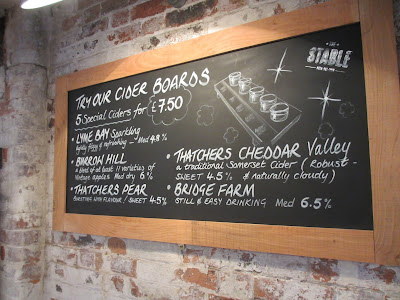 TRY OUR CIDER BOARDS
5 Special Ciders for £7.50
• LYME BAY Sparkling
lightly fizzy & refreshing Med 4.8%
• BARRON HILL
a blend of at least 11 varieties of
Vintage apples Med dry 6%
• THATCHERS PEAR
BURSTING WITH FLAVOUR / SWEET 4.5%
THE
STABLE
• THATCHERS CHEDDAR Valley
a traditional Somerset Cider (Robust-
SWEET 4.5% & naturally cloudy)
• BRIDGE FARM
STILL & EASY DRINKING Med 6.5%